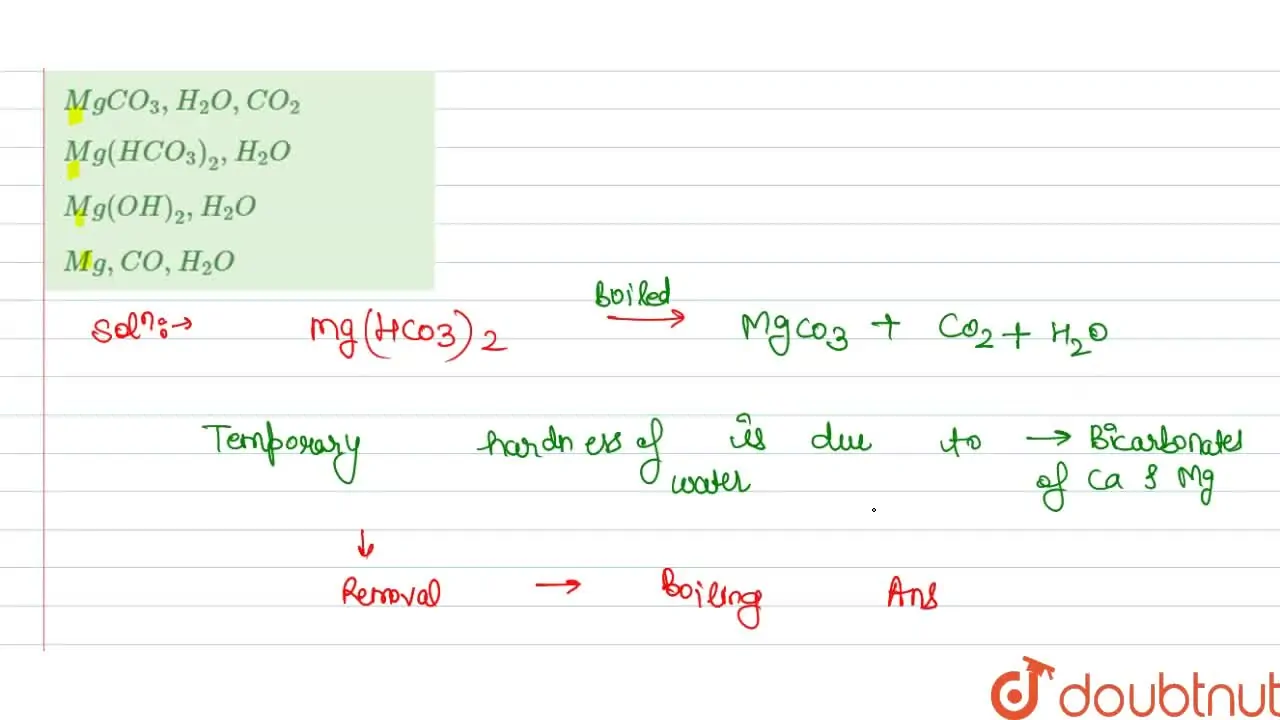 MgCO₃, H₂O, CO₂
Mg(HCO₃)₂, H₂O
Mg(OH)₂, H₂O
Mg, CO, H₂O
Boiled
Solⁿ:→ Mg(HCO3)2 → MgCO3 + CO2 + H2O
Temporary hardness of is due to → Bicarbonates
water of Ca & Mg
↓
Removal → Boiling Ans
doubtnut